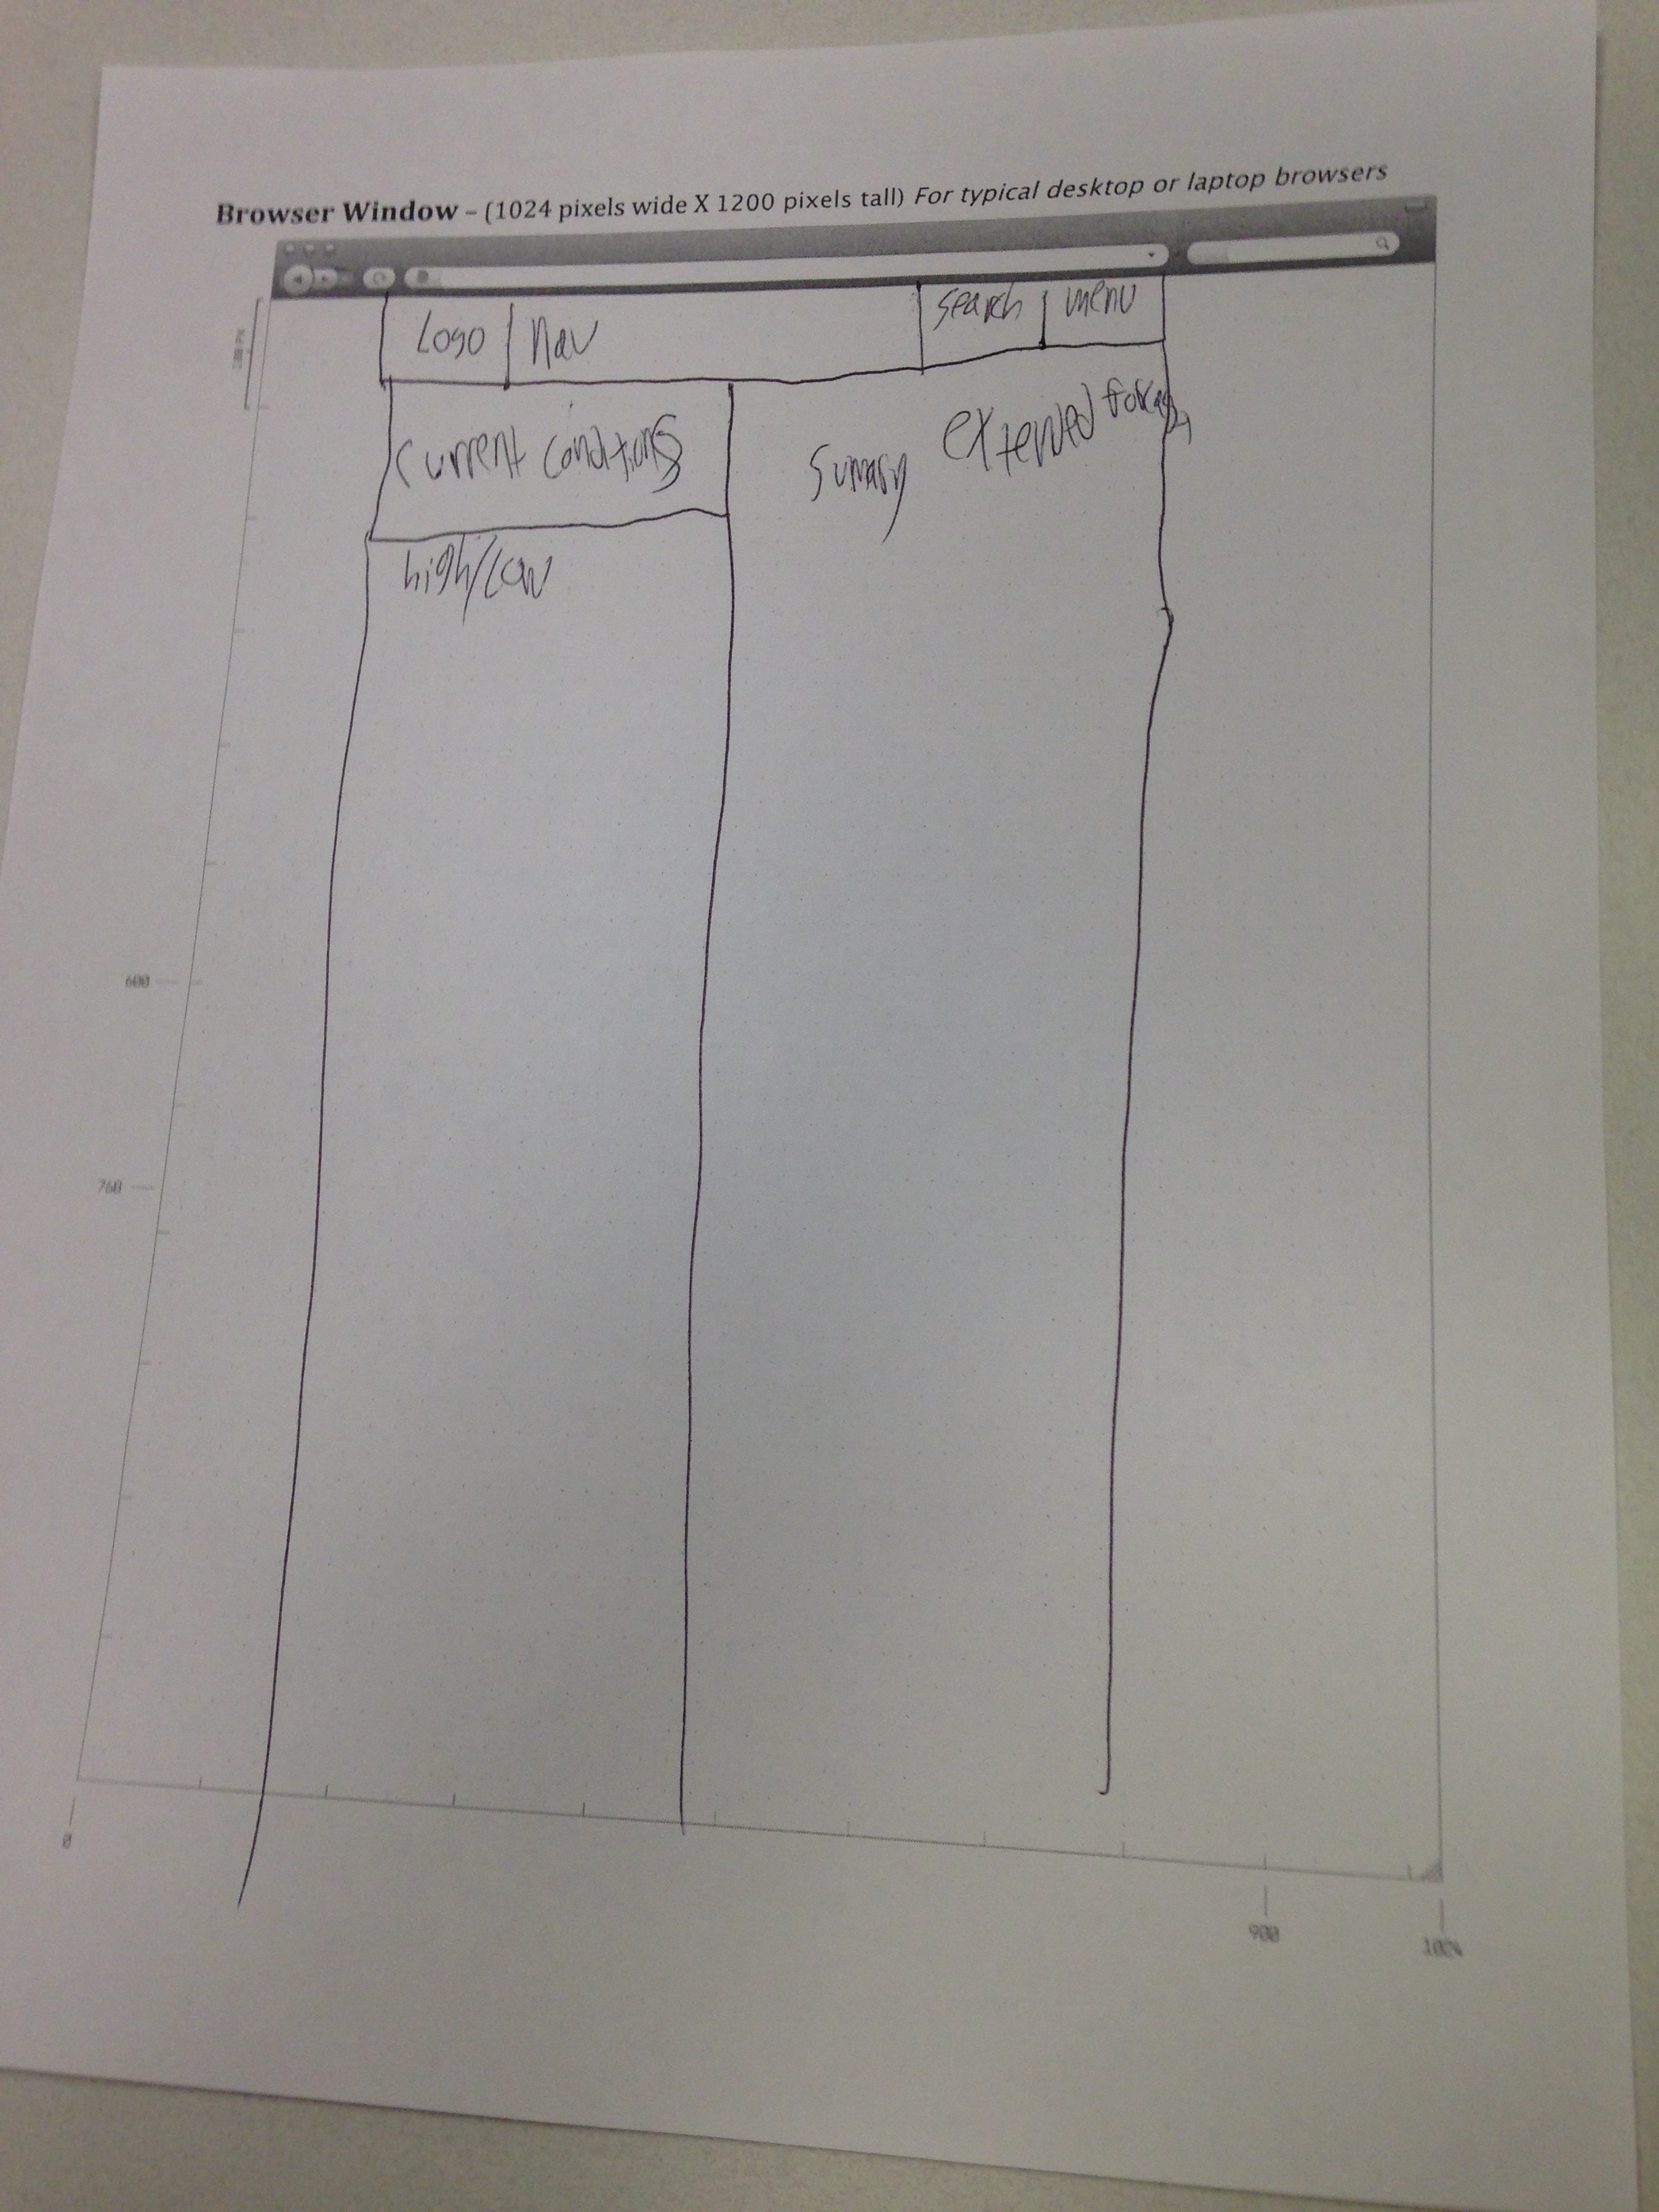 Browser Window – (1024 pixels wide X 1200 pixels tall) For typical desktop or laptop browsers
Logo
Nav
search
menu
Current conditions
Sumary
extended
high/low
600
760
0
900
1024